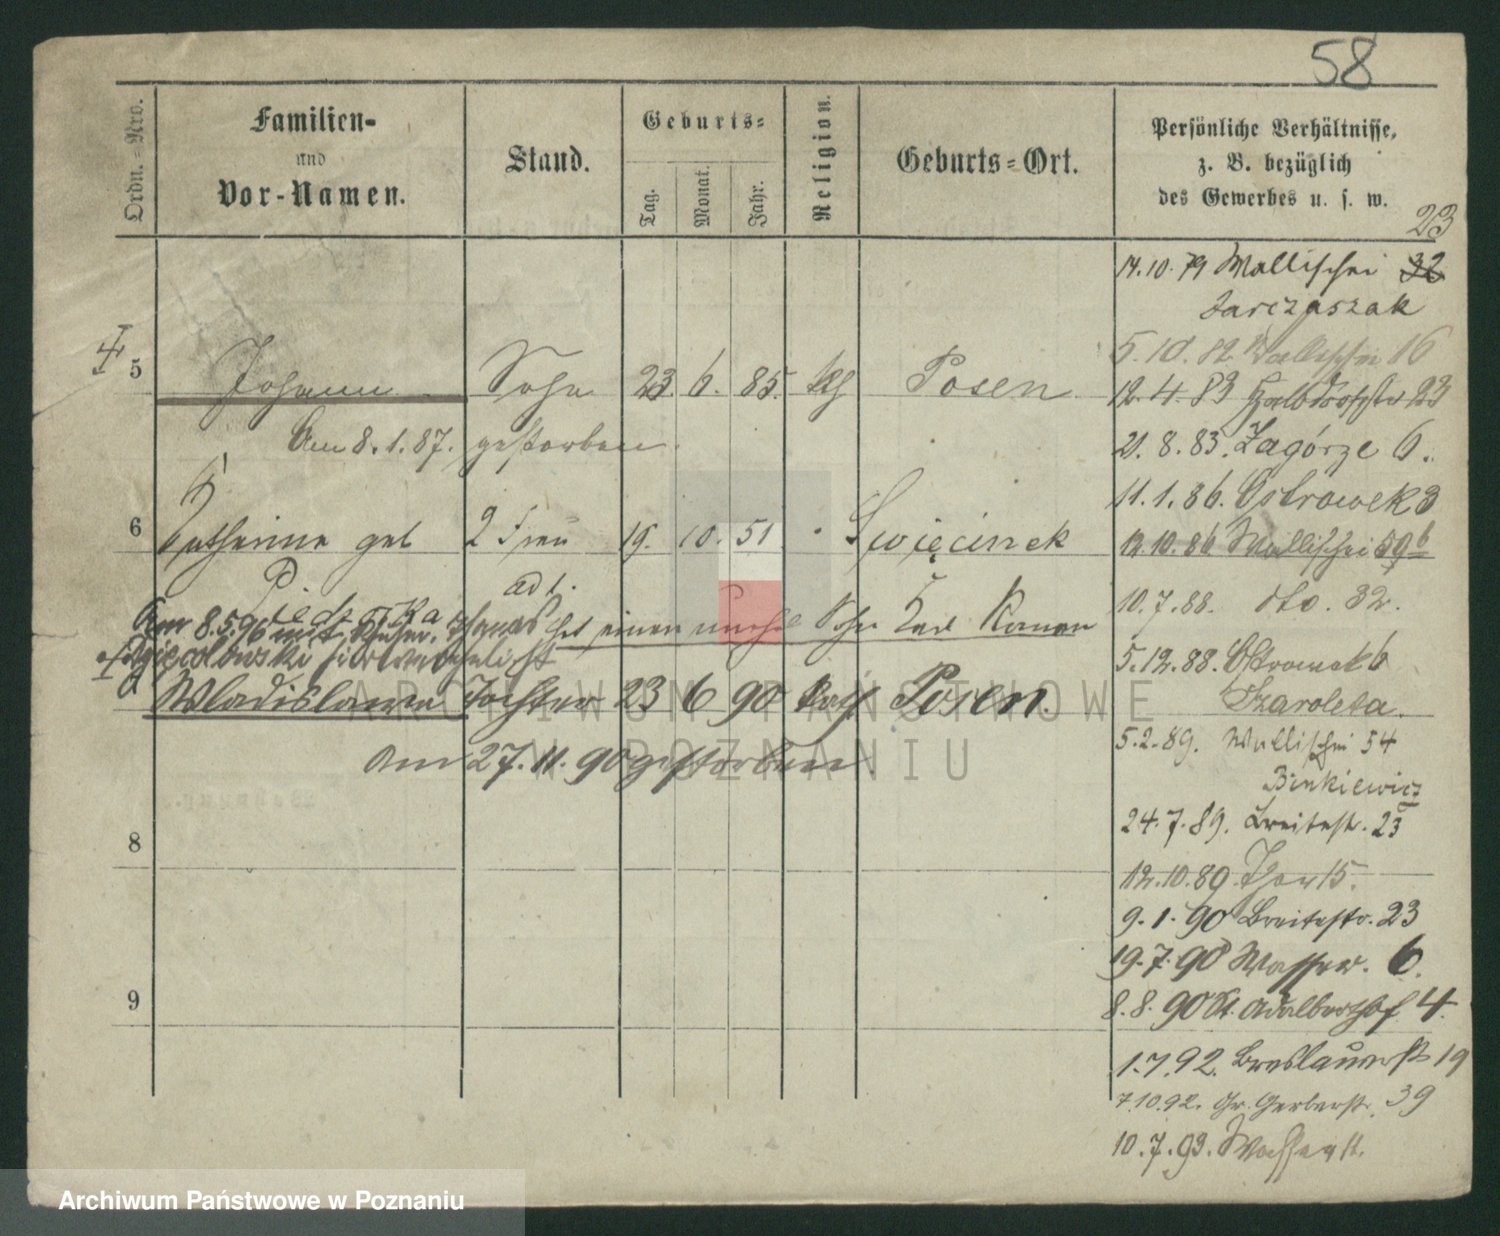 58
Ordn.-Nro.
Familien-
und
Vor-Namen.
Stand.
Geburts-
Tag.
Monat.
Jahr.
Religion.
Geburts-Ort.
Persönliche Verhältnisse,
z. B. bezüglich
des Gewerbes u. s. w.
23
14.10.79 Wallischei 32
Tarczaszak
5 Johann Sohn 23. 6. 85. kth Posen
Am 8.1.87. gestorben.
5.10.82 Wallischei 16
12.4.83 23
21.8.83. Zagórze 6.
11.1.86. Ostrowek 3
6 Katharina geb 2 Frau 19. 10. 51 Swięcinek
12.10.86 Wallischei 59b
10.7.88. dto. 32.
Am 8.5.96 mit
hat einen Sohn Karl Roman
5.12.88. Ostrowek 6
Szaroleta.
Wladislawa Tochter 23 6 90 kath Posen.
am 27.11.90 gestorben.
5.2.89. Wallischei 54
Binkiewicz
24.7.89. Breitestr. 23
8
12.10.89. Thor 15.
9.1.90 Breitestr. 23
19.7.90 Wasserstr. 6.
9
8.8.90 St. Adalberthof 4.
1.7.92. Breslauerstr 19
7.10.92. Gr. Gerberstr. 39
10.7.93. Wasserstr.
ARCHIWUM PAŃSTWOWE
W POZNANIU
Archiwum Państwowe w Poznaniu